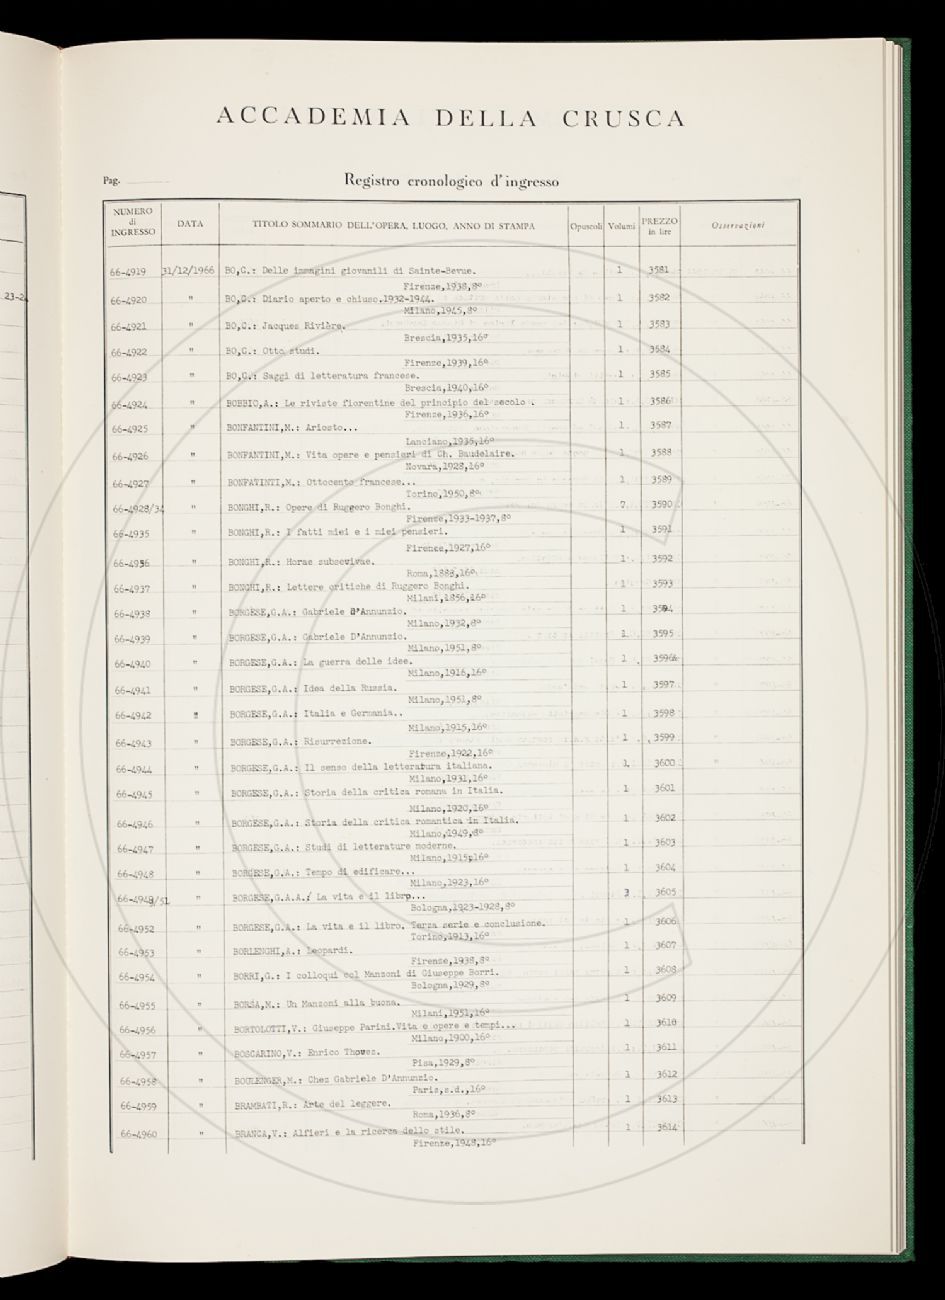 ACCADEMIA DELLA CRUSCA
Pag.
Registro cronologico d'ingresso
NUMERO di INGRESSO DATA TITOLO SOMMARIO DELL'OPERA, LUOGO, ANNO DI STAMPA Opuscoli Volumi PREZZO in lire Osservazioni
66-4919 31/12/1966 BO,C.: Delle immagini giovanili di Sainte-Beuve. 1 3581
Firenze,1938,8º
66-4920 " BO,C.: Diario aperto e chiuso.1932-1944. 1 3582
Milano,1945,8º
66-4921 " BO,C.: Jacques Rivière. 1 3583
Brescia,1935,16º
66-4922 " BO,C.: Otto studi. 1 3584
Firenze,1939,16º
66-4923 " BO,C.: Saggi di letteratura francese. 1 3585
Brescia,1940,16º
66-4924 " BOBBIO,A.: Le riviste fiorentine del principio del secolo. 1 3586
Firenze,1936,16º
66-4925 " BONFANTINI,M.: Ariosto... 1 3587
Lanciano,1935,16º
66-4926 " BONFANTINI,M.: Vita opere e pensieri di Ch. Baudelaire. 1 3588
Novara,1928,16º
66-4927 " BONFATINTI,M.: Ottocento francese... 1 3589
Torino,1950,8º
66-4928/34 " BONGHI,R.: Opere di Ruggero Bonghi. 7 3590
Firenze,1933-1937,8º
66-4935 " BONGHI,R.: I fatti miei e i miei pensieri. 1 3591
Firenze,1927,16º
66-4936 " BONGHI,R.: Horae subsecivae. 1 3592
Roma,1888,16º
66-4937 " BONGHI,R.: Lettere critiche di Ruggero Bonghi. 1 3593
Milani,1856,16º
66-4938 " BORGESE,G.A.: Gabriele D'Annunzio. 1 3594
Milano,1932,8º
66-4939 " BORGESE,G.A.: Gabriele D'Annunzio. 1 3595
Milano,1951,8º
66-4940 " BORGESE,G.A.: La guerra delle idee. 1 3596
Milano,1916,16º
66-4941 " BORGESE,G.A.: Idea della Russia. 1 3597
Milano,1951,8º
66-4942 " BORGESE,G.A.: Italia e Germania.. 1 3598
Milano,1915,16º
66-4943 " BORGESE,G.A.: Risurrezione. 1 3599
Firenze,1922,16º
66-4944 " BORGESE,G.A.: Il senso della letteratura italiana. 1 3600
Milano,1931,16º
66-4945 " BORGESE,G.A.: Storia della critica romana in Italia. 1 3601
Milano,1920,16º
66-4946 " BORGESE,G.A.: Storia della critica romantica in Italia. 1 3602
Milano,1949,8º
66-4947 " BORGESE,G.A.: Studi di letterature moderne. 1 3603
Milano,1915,16º
66-4948 " BORGESE,G.A.: Tempo di edificare... 1 3604
Milano,1923,16º
66-4949/51 " BORGESE,G.A.A.: La vita e il libro... 3 3605
Bologna,1923-1928,8º
66-4952 " BORGESE,G.A.: La vita e il libro. Terza serie e conclusione. 1 3606
Torino,1913,16º
66-4953 " BORLENGHI,A.: Leopardi. 1 3607
Firenze,1938,8º
66-4954 " BORRI,G.: I colloqui col Manzoni di Giuseppe Borri. 1 3608
Bologna,1929,8º
66-4955 " BORSA,M.: Un Manzoni alla buona. 1 3609
Milani,1951,16º
66-4956 " BORTOLOTTI,V.: Giuseppe Parini.Vita e opere e tempi... 1 3610
Milano,1900,16º
66-4957 " BOSCARINO,V.: Enrico Thovez. 1 3611
Pisa,1929,8º
66-4958 " BOULENGER,M.: Chez Gabriele D'Annunzio. 1 3612
Paris,s.d.,16º
66-4959 " BRAMBATI,R.: Arte del leggere. 1 3613
Roma,1936,8º
66-4960 " BRANCA,V.: Alfieri e la ricerca dello stile. 1 3614
Firenze,1948,16º